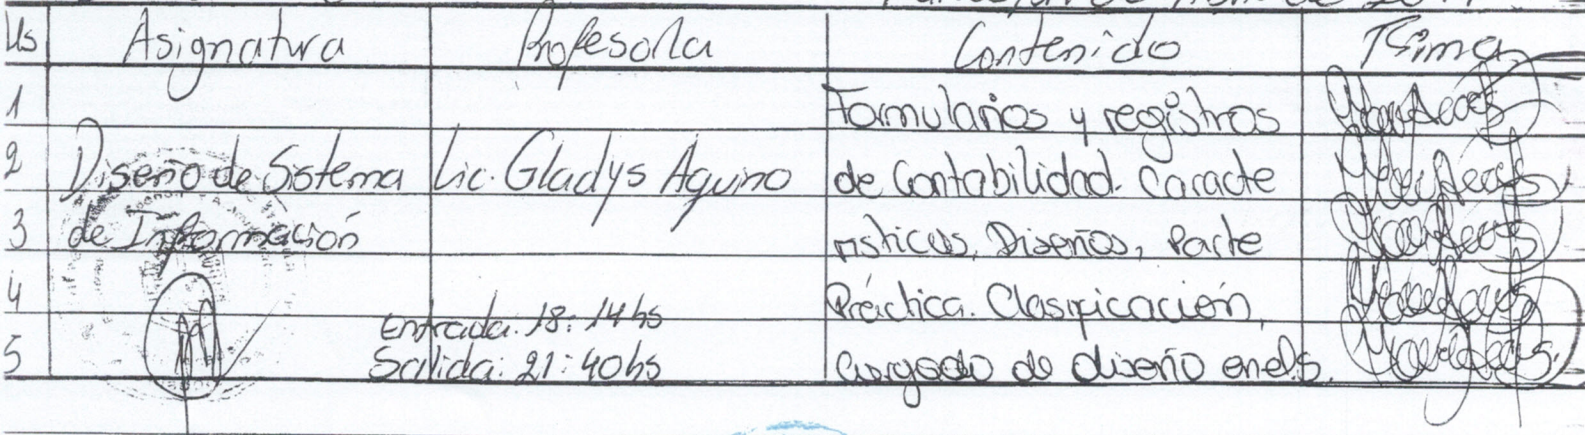 Hs Asignatura Profesor/a Contenido Firma
1 Formularios y registros
2 Diseño de Sistema Lic. Gladys Aquino de Contabilidad. Caracte
3 de Información rísticas, Diseños, Parte
4 Práctica. Clasificación,
Entrada: 18:14hs
5 Salida: 21:40hs de diseño